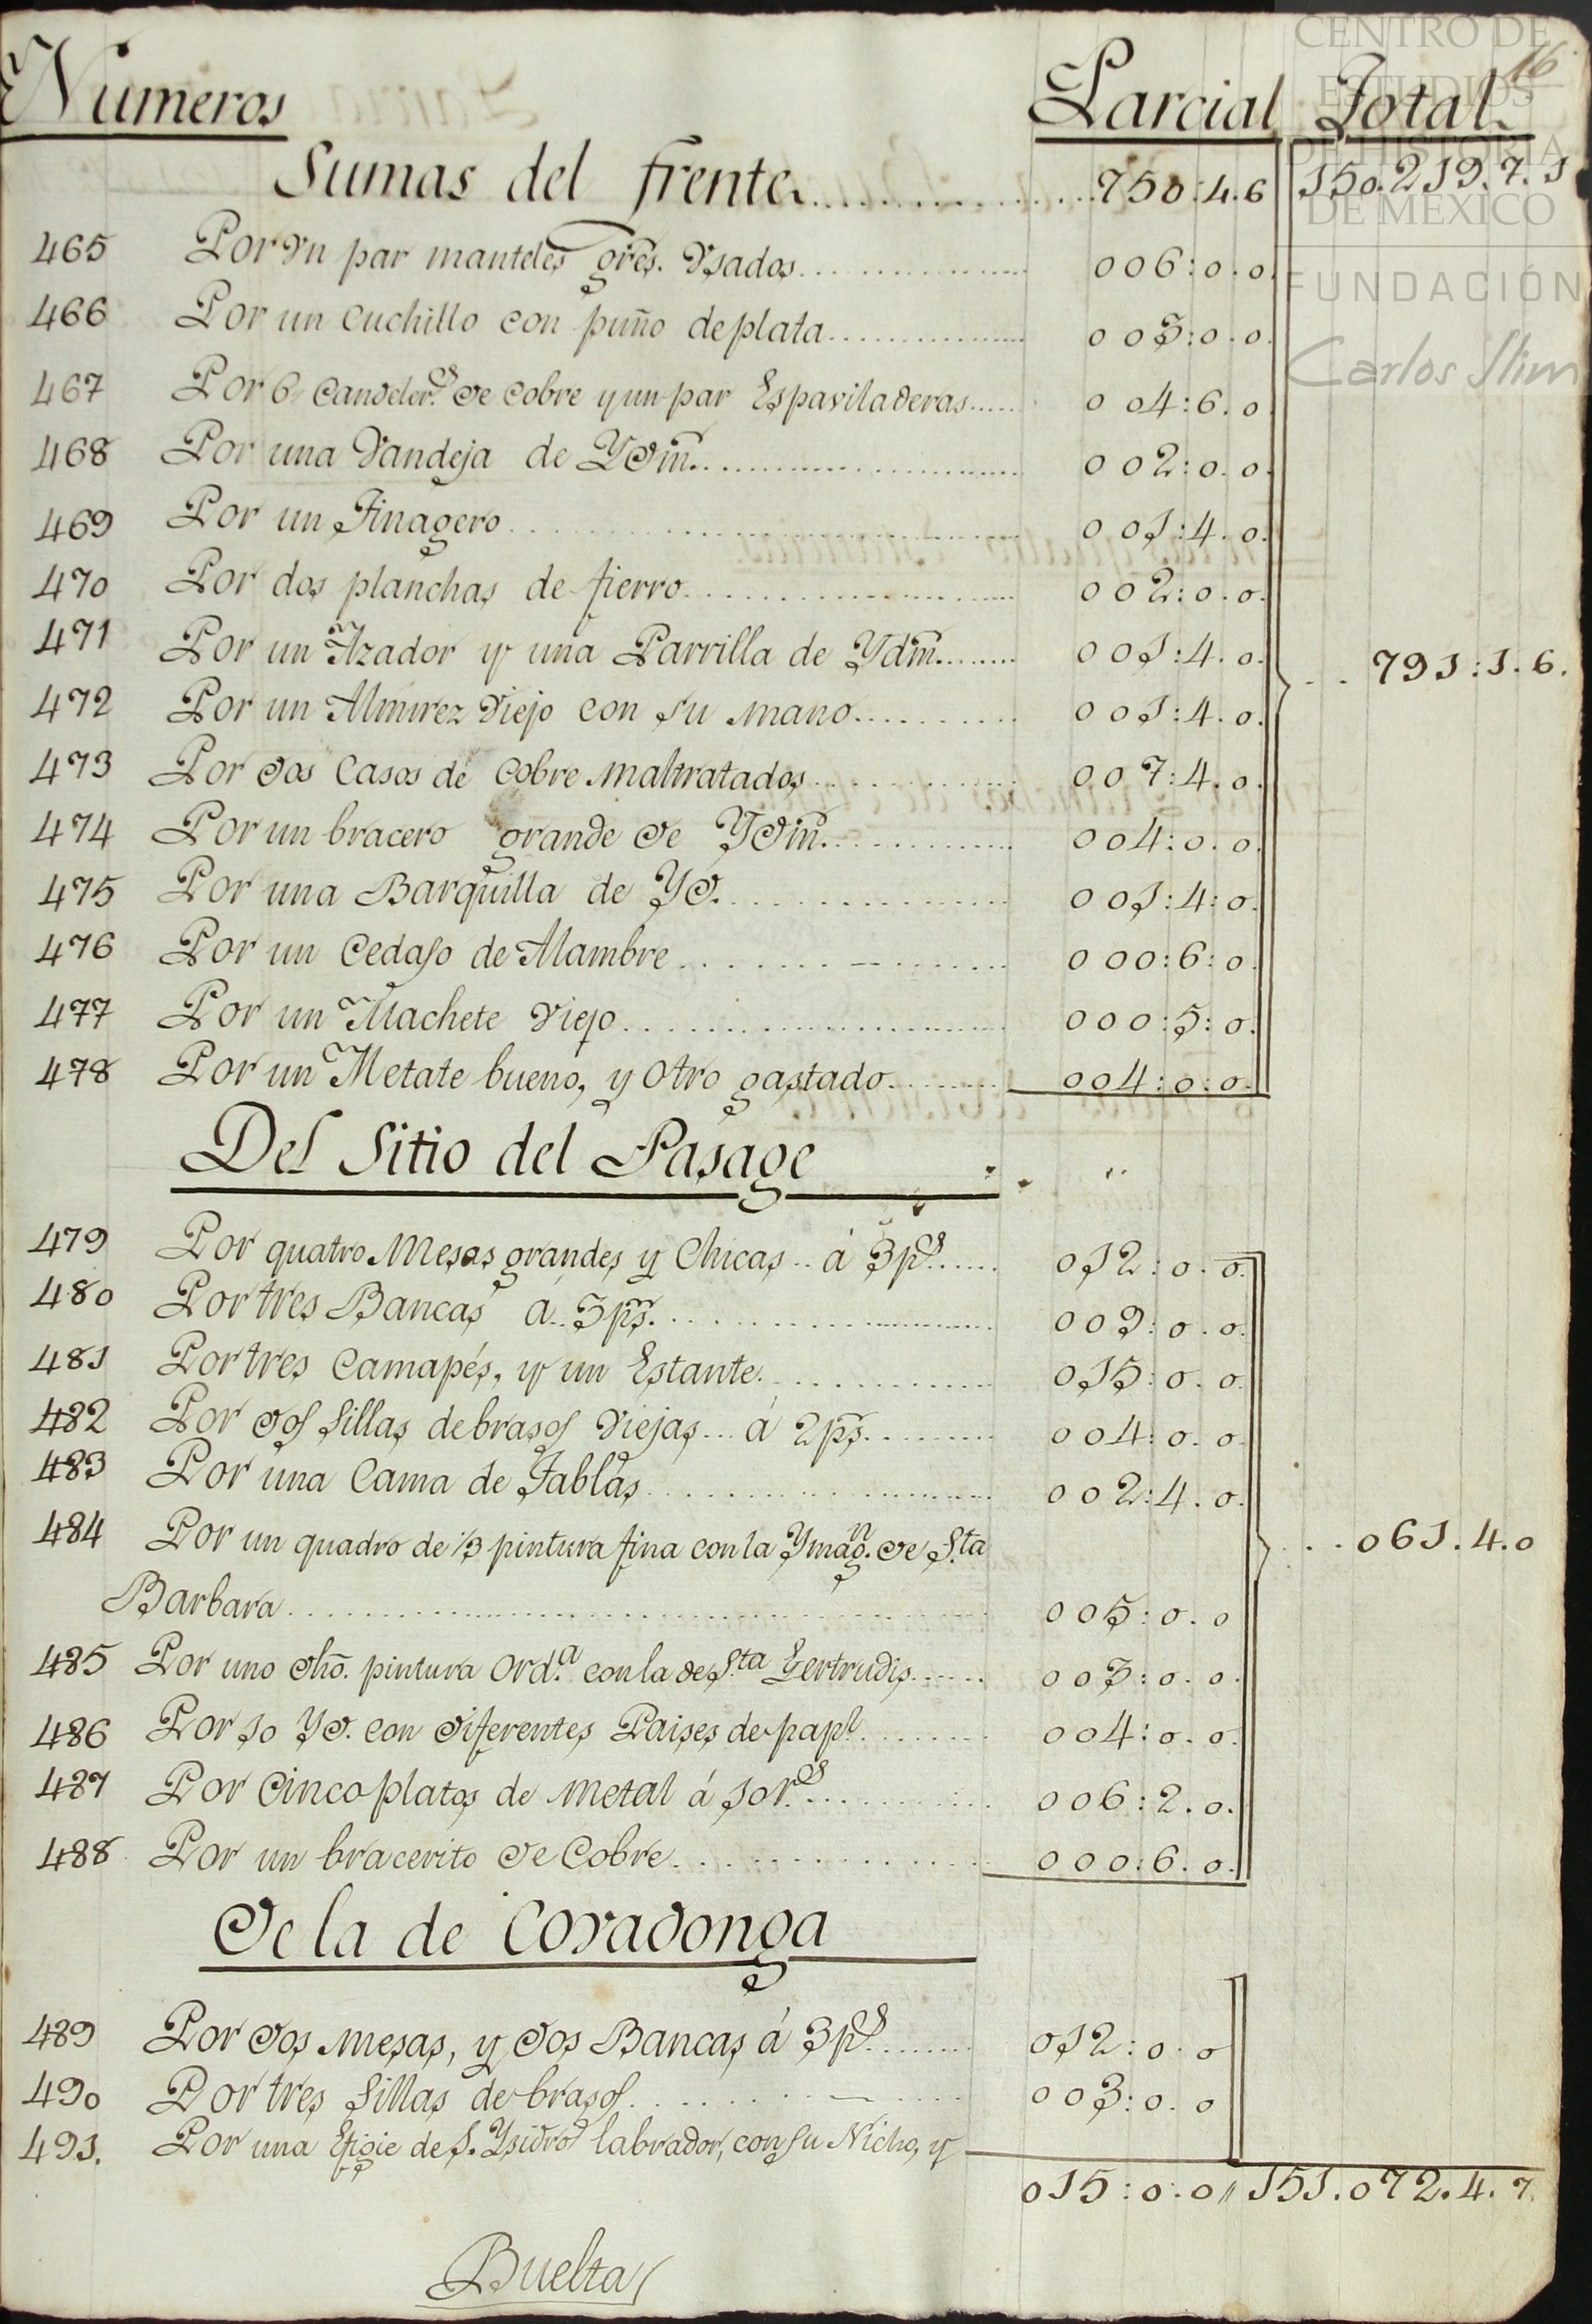 CENTRO DE
ESTUDIOS
DE HISTORIA
DE MEXICO
FUNDACIÓN
Carlos Slim
16
Numeros Parcial Total
Sumas del frente 750:4.6 150.219.7.1
465 Por Vn par manteles grēs. Vsados 006:0.0
466 Por un Cuchillo con puño de plata 003:0.0
467 Por 6 Candeler.s de Cobre y un par Espaviladeras 004:6.0
468 Por una Vandeja de Ydm̄. 002:0.0
469 Por un Tinagero 001:4.0
470 Por dos planchas de fierro 002:0.0
471 Por un Azador y una Parrilla de Ydm̄. 001:4.0 791:1.6.
472 Por un Almirez Viejo con su mano 001:4.0
473 Por dos Casos de Cobre maltratados 007:4.0
474 Por un bracero grande de Ydm̄. 004:0.0
475 Por una Barquilla de Yd. 001:4:0
476 Por un Cedaso de Alambre 000:6:0
477 Por un Machete Viejo 000:5:0
478 Por un Metate bueno, y otro gastado 004:0:0
Del Sitio del Pasage
479 Por quatro Mesas grandes y Chicas á 3 p.s 012:0.0
480 Por tres Bancas a 3 ps̄. 009:0.0
481 Por tres Camapés, y un Estante 015:0.0
482 Por dos Sillas de brasos Viejas á 2 ps̄. 004:0.0
483 Por una Cama de Tablas 002:4.0
484 Por un quadro de ⅓ pintura fina con la Ymag.n de S.ta 061.4.0
Barbara 005:0.0
485 Por uno dho̅. pintura Ord.a con la de S.ta Gertrudis 003:0.0
486 Por 10 Yd. con diferentes Paises de papl. 004:0.0
487 Por Cinco platos de metal á 10 r.s 006:2.0
488 Por un bracerito de Cobre 000:6.0
De la de Covadonga
489 Por dos mesas, y dos Bancas á 3 p.s 012:0.0
490 Por tres Sillas de brasos 003:0.0
491. Por una Efigie de S. Ysidro labrador, con su Nicho, y
015:0.0 151.072.4.7.
Buelta